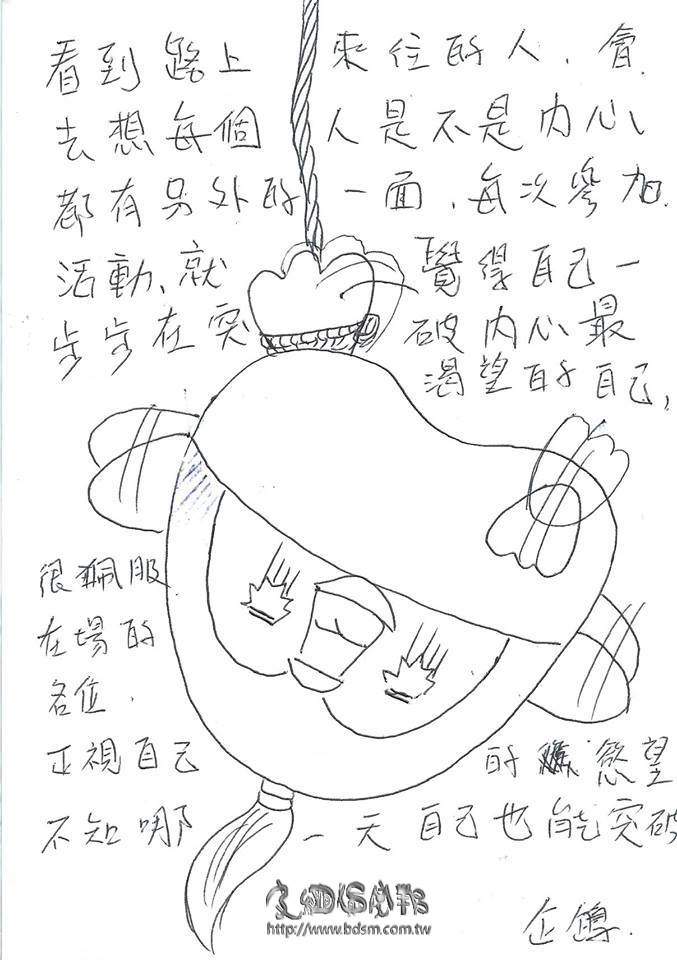 看到路上 來往的人、會
去想每個 人是不是內心
都有另外的 一面、每次參加
活動、就 覺得自己一
步步在突 破內心最
渴望的自己,
很珮服
在場的
各位、
正視自己 的 慾望
不知哪 一天自己也能突破
企鵝.
http://www.bdsm.com.tw